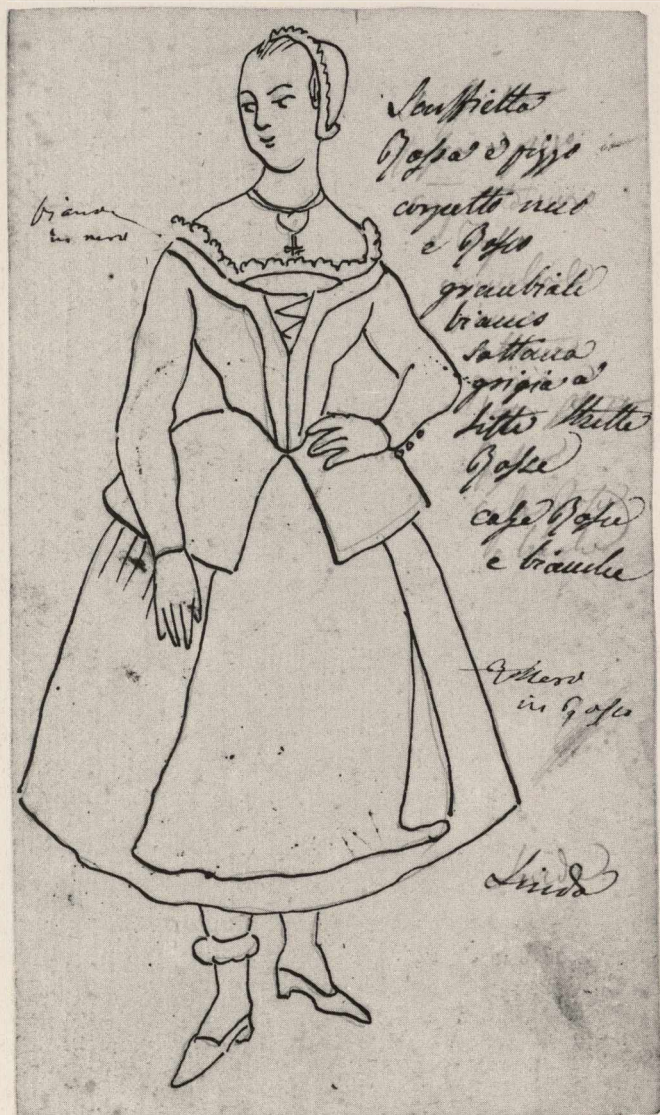 bianco
in nero
Scuffietta
Rossa e pizzo
corpetto nero
e Rosso
grembiale
bianco
sottana
grigia a
liste strette
Rosse
calze Rosse
e bianche
in Rosso
Linda